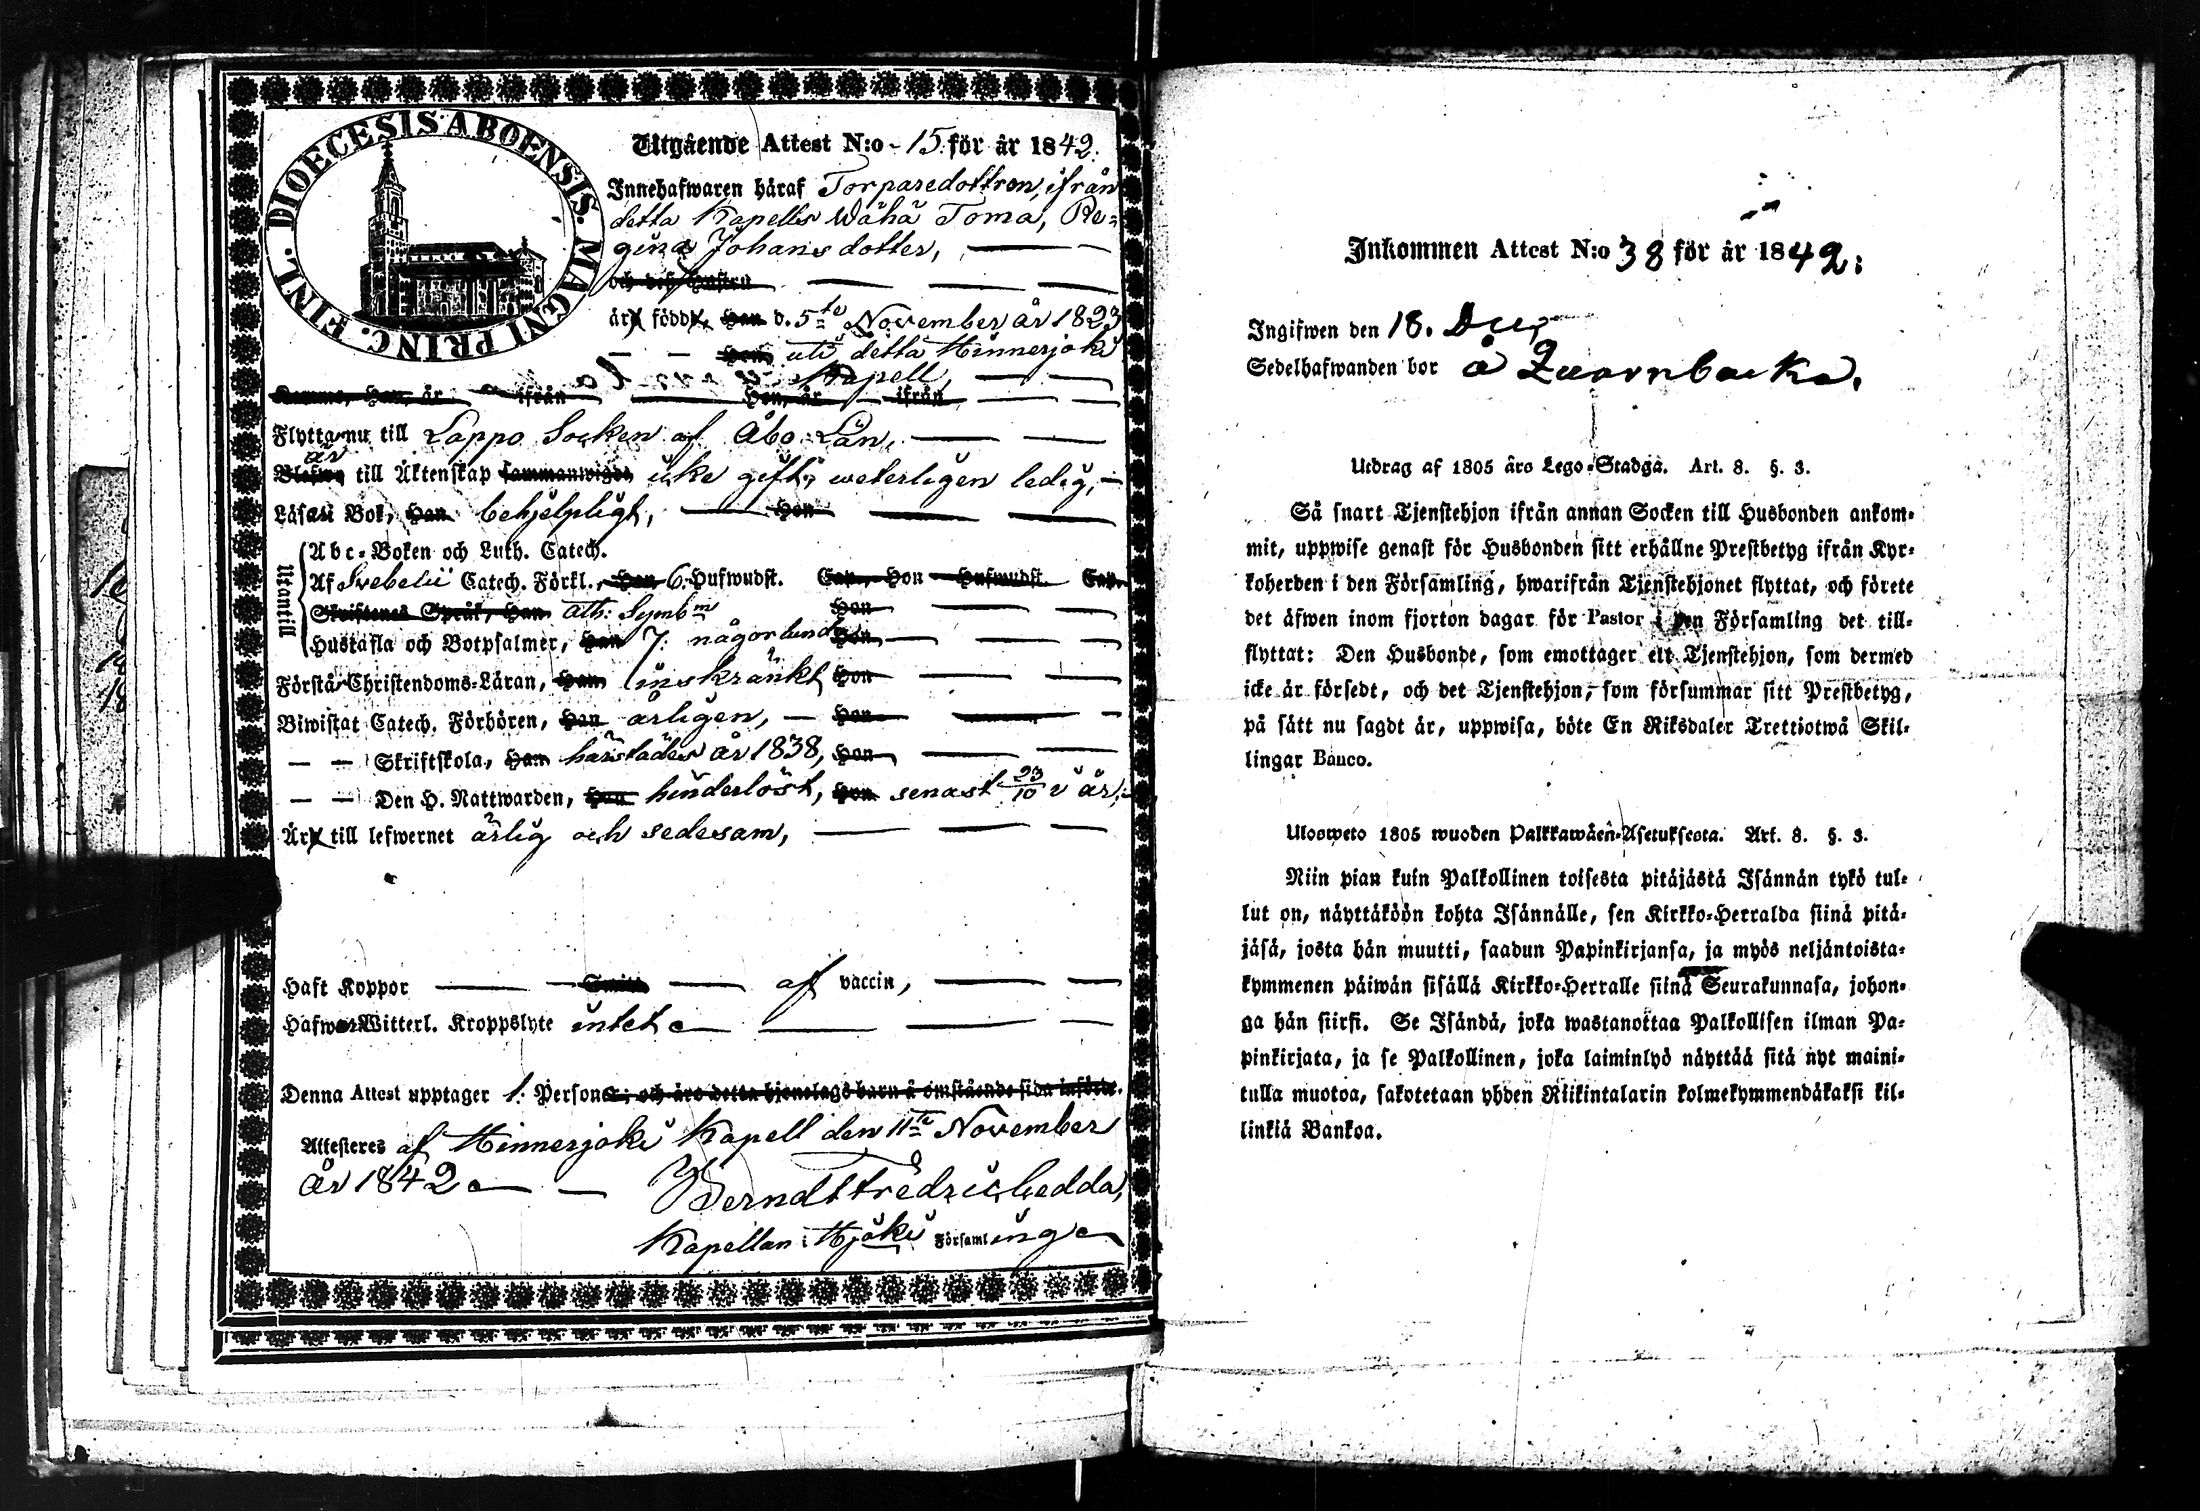 DIOECESIS ABOENSIS. MAGNI PRINC. FINL.
Utgående Attest N:o 15. för år 1842.
Innehafwaren häraf Torparedottren, ifrån
detta Kapells Wähä Toma, Re-
gina Johans dotter,
och dess Hustru
är född, Han d. 5te November år 1823
Hon, uti detta Hinnerjoki
Kapell,
Komne, Han, år ifrån Hon, år ifrån
Flytta nu till Lappo Socken af Åbo Län,
är
till Äktenskap sammanwigde icke gift, weterligen ledig,
Läsa i Bok, Han behjelpligt, Hon
Utantill
Abc-Boken och Luth. Catech.
Af Svebelii Catech. Förkl., Han 6. Hufwudst. Cap., Hon Hufwudst. Cap.
Skriftenes Språk, Han Ath: Symbm Hon
Hustafla och Botpsalmer, Han 7. någorlunda Hon
Förstå Christendoms-Läran, Han inskränkt Hon
Biwistat Catech. Förhören, Han årligen, Hon
— — Skriftskola, Han härstädes år 1838, Hon
— — Den H. Nattwarden, Han hinderlöst, Hon senast 23/10 i år,
Är till lefwernet ärlig och sedesam,
Haft Koppor af vaccin,
Hafwa Witterl. Kroppslyte intet
Denna Attest upptager 1. Persone; och äro detta hjonelags barn å omstående sida införde.
Attesteres af Hinnerjoki Kapell den 11te November
år 1842
Berndt Fredric Gedda,
Kapellan i Hjoki Församlinge
Inkommen Attest N:o 38 för år 1842:
Ingifwen den 18. Dec,
Sedelhafwanden bor å Quarnbacka.
Utdrag af 1805 års Lego-Stadga. Art. 8. §. 3.
Så snart Tjenstehjon ifrån annan Socken till Husbonden ankom-
mit, uppwise genast för Husbonden sitt erhållne Prestbetyg ifrån Kyr-
koherden i den Församling, hwarifrån Tjenstehjonet flyttat, och förete
det äfwen inom fjorton dagar för Pastor i den Församling det till-
flyttat: Den Husbonde, som emottager ett Tjenstehjon, som dermed
icke är försedt, och det Tjenstehjon, som försummar sitt Prestbetyg,
på sätt nu sagdt är, uppwisa, böte En Riksdaler Trettiotwå Skil-
lingar Banco.
Ulosweto 1805 wuoden Palkkawäen-Asetuksesta. Art. 8. §. 3.
Niin pian kuin Palkollinen toisesta pitäjästä Isännän tykö tul-
lut on, näyttäköön kohta Isännälle, sen Kirkko-Herralda siinä pitä-
jäsä, josta hän muutti, saadun Papinkirjansa, ja myös neljäntoista-
kymmenen päiwän sisällä Kirkko-Herralle siinä Seurakunnasa, johon-
ga hän siirsi. Se Isändä, joka wastanottaa Palkollisen ilman Pa-
pinkirjata, ja se Palkollinen, joka laiminlyö näyttää sitä nyt maini-
tulla muotoa, sakotetaan yhden Riikintalarin kolmekymmendäkaksi kil-
linkiä Bankoa.